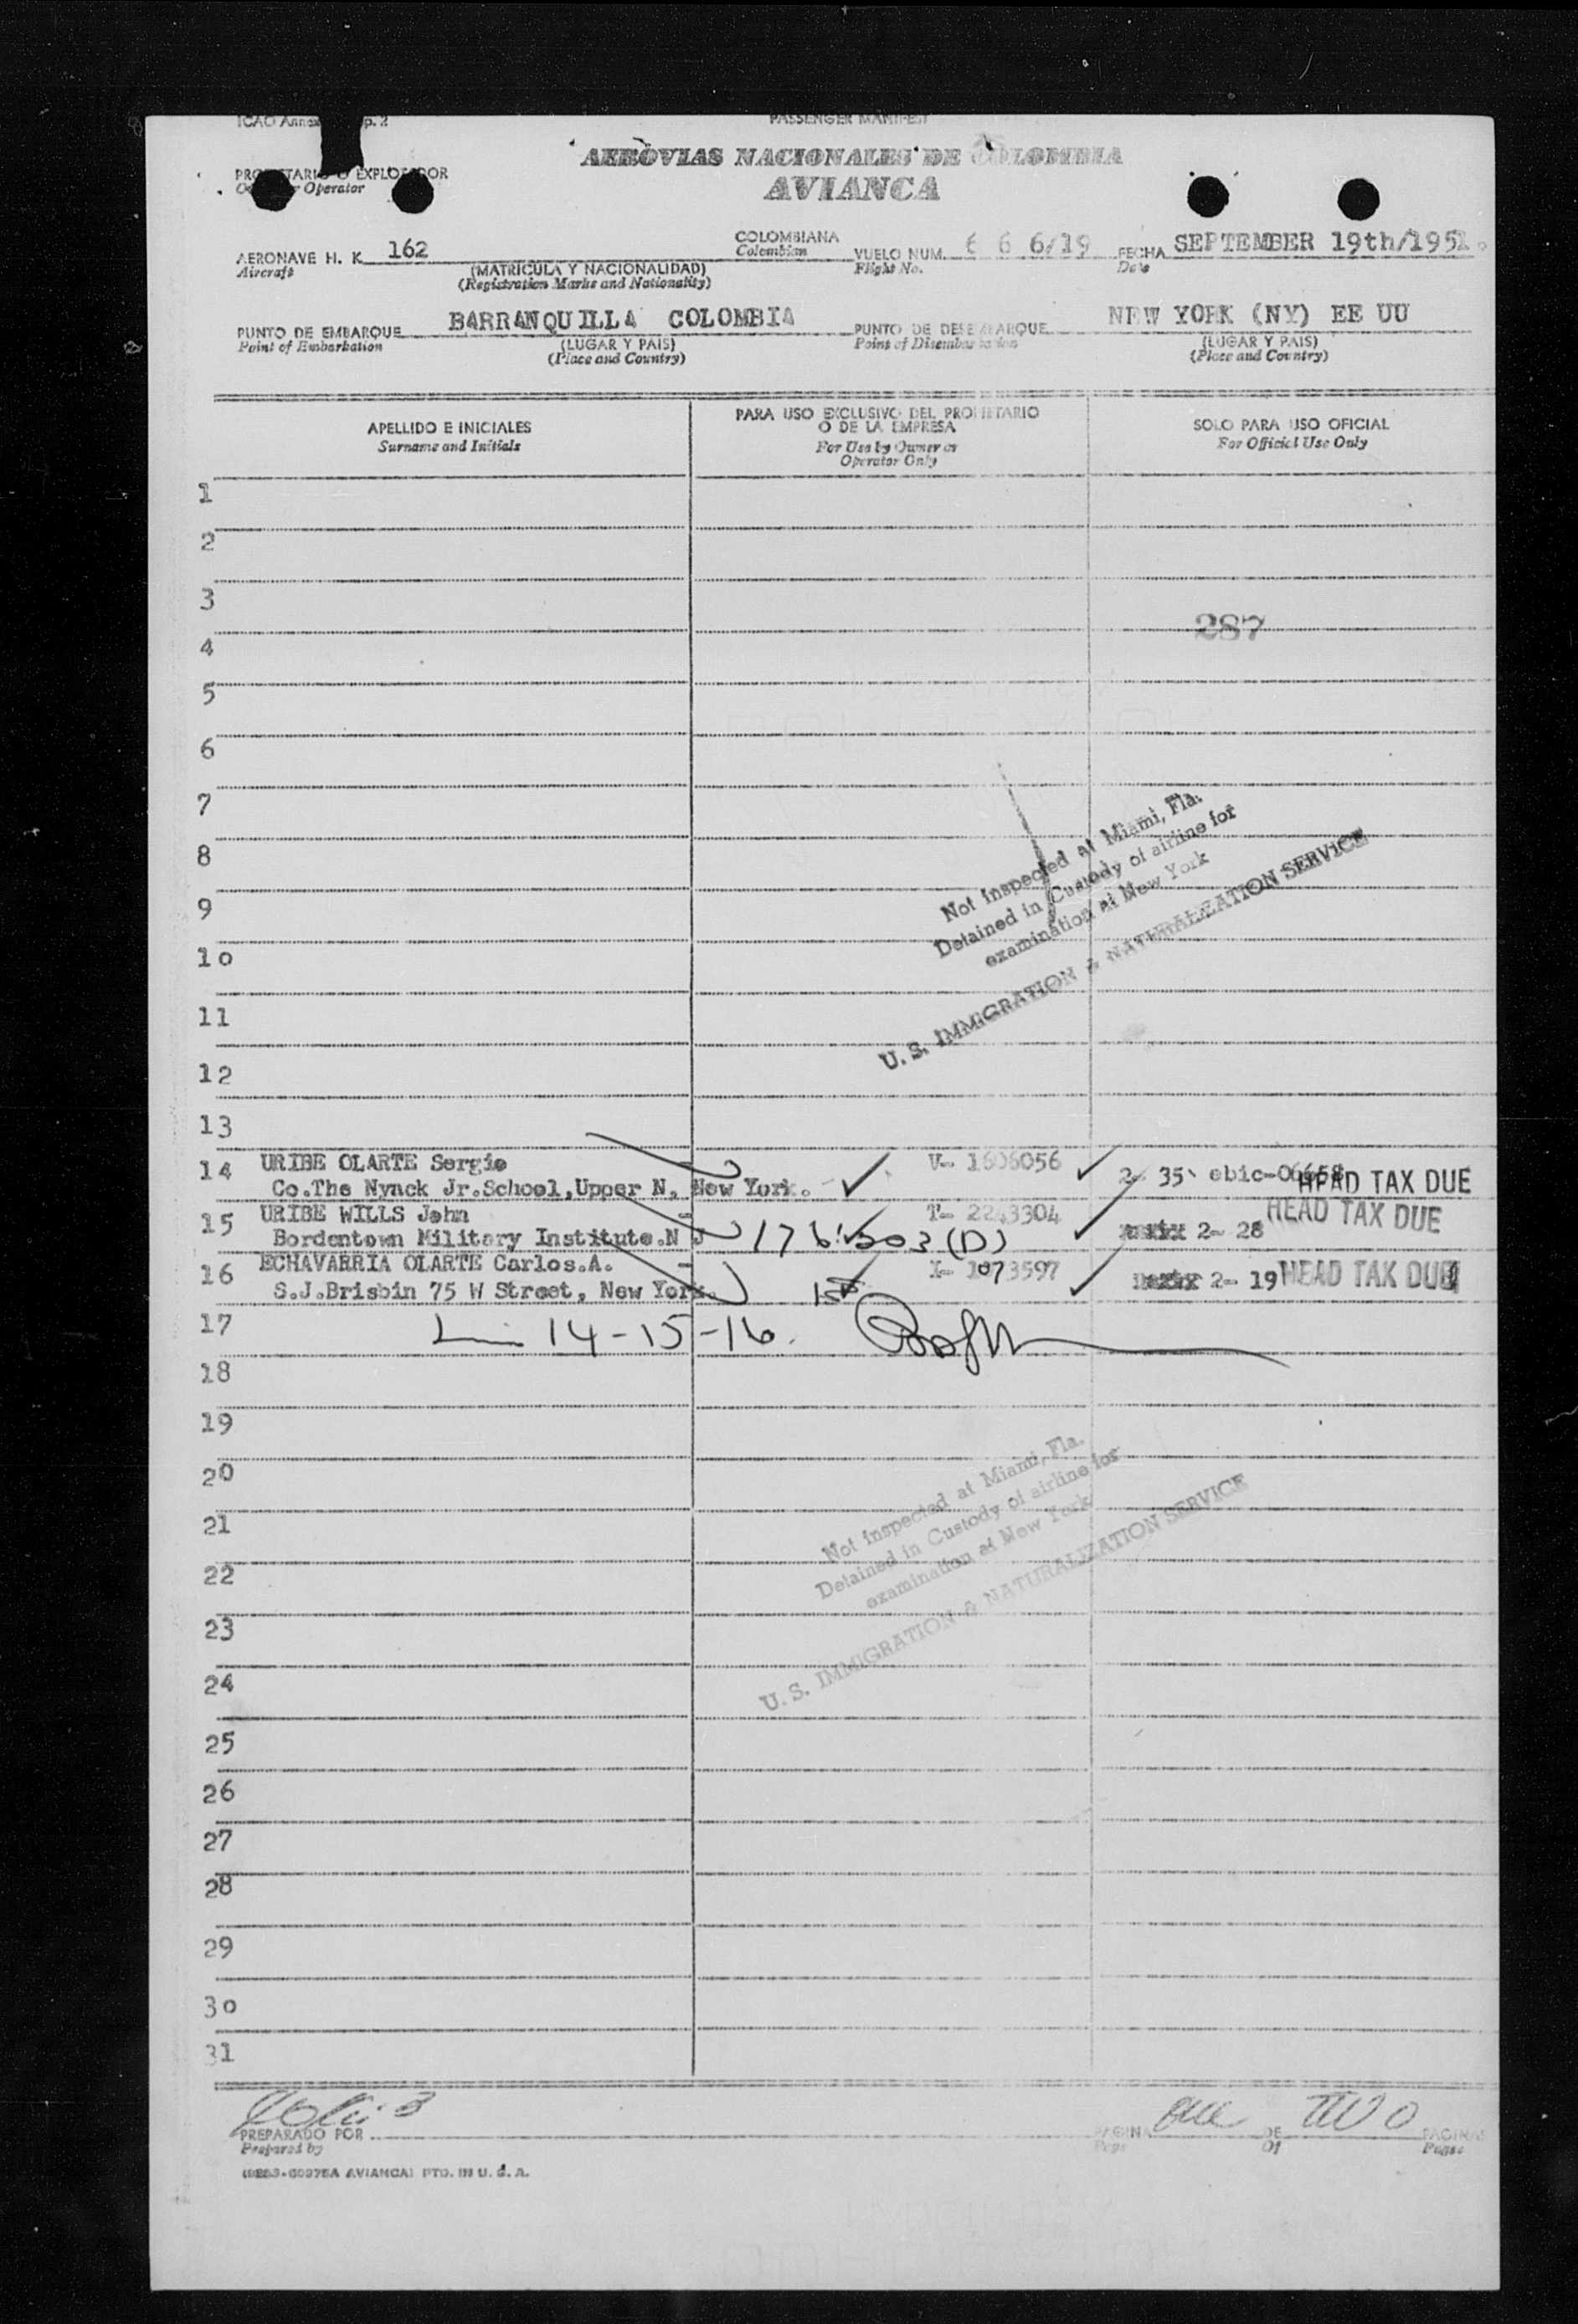 ICAO Annex p. 2
PASSENGER MANIFEST
AEROVIAS NACIONALES DE COLOMBIA
AVIANCA
PROPIETARIO O EXPLOTADOR
Owner or Operator
AERONAVE H. K. 162 COLOMBIANA VUELO NUM. 6 6 6/19 FECHA SEPTEMBER 19th/1951.
Aircraft (MATRICULA Y NACIONALIDAD) Colombian Flight No. Date
(Registration Marks and Nationality)
PUNTO DE EMBARQUE BARRANQUILLA COLOMBIA PUNTO DE DESEMBARQUE NEW YORK (NY) EE UU
Point of Embarkation (LUGAR Y PAIS) Point of Disembarkation (LUGAR Y PAIS)
(Place and Country) (Place and Country)
APELLIDO E INICIALES
Surname and Initials
PARA USO EXCLUSIVO DEL PROPIETARIO
O DE LA EMPRESA
For Use by Owner or
Operator Only
SOLO PARA USO OFICIAL
For Official Use Only
1
2
3
287
4
5
6
7
8
9
10
11
12
13
Not inspected at Miami, Fla.
Detained in Custody of airline for
examination at New York
U. S. IMMIGRATION & NATURALIZATION SERVICE
14 URIBE OLARTE Sergio - V- 1606056 2- 35 ebic-06658 HEAD TAX DUE
Co.The Nynck Jr.School,Upper N, New York.
15 URIBE WILLS John - T- 2243304 HEAD TAX DUE
Bordentown Military Institute.N J 2- 28
16 ECHAVARRIA OLARTE Carlos.A. - 1073597
S.J.Brisbin 75 W Street, New York. 2- 19 HEAD TAX DUE
17 14-15-16.
18
19
20
21
22
23
24
Not inspected at Miami, Fla.
Detained in Custody of airline for
examination at New York
U. S. IMMIGRATION & NATURALIZATION SERVICE
25
26
27
28
29
30
31
PREPARADO POR PAGINA one DE TWO PAGINAS
Prepared by Page Of Pages
AVIANCA) PTD. IN U. S. A.